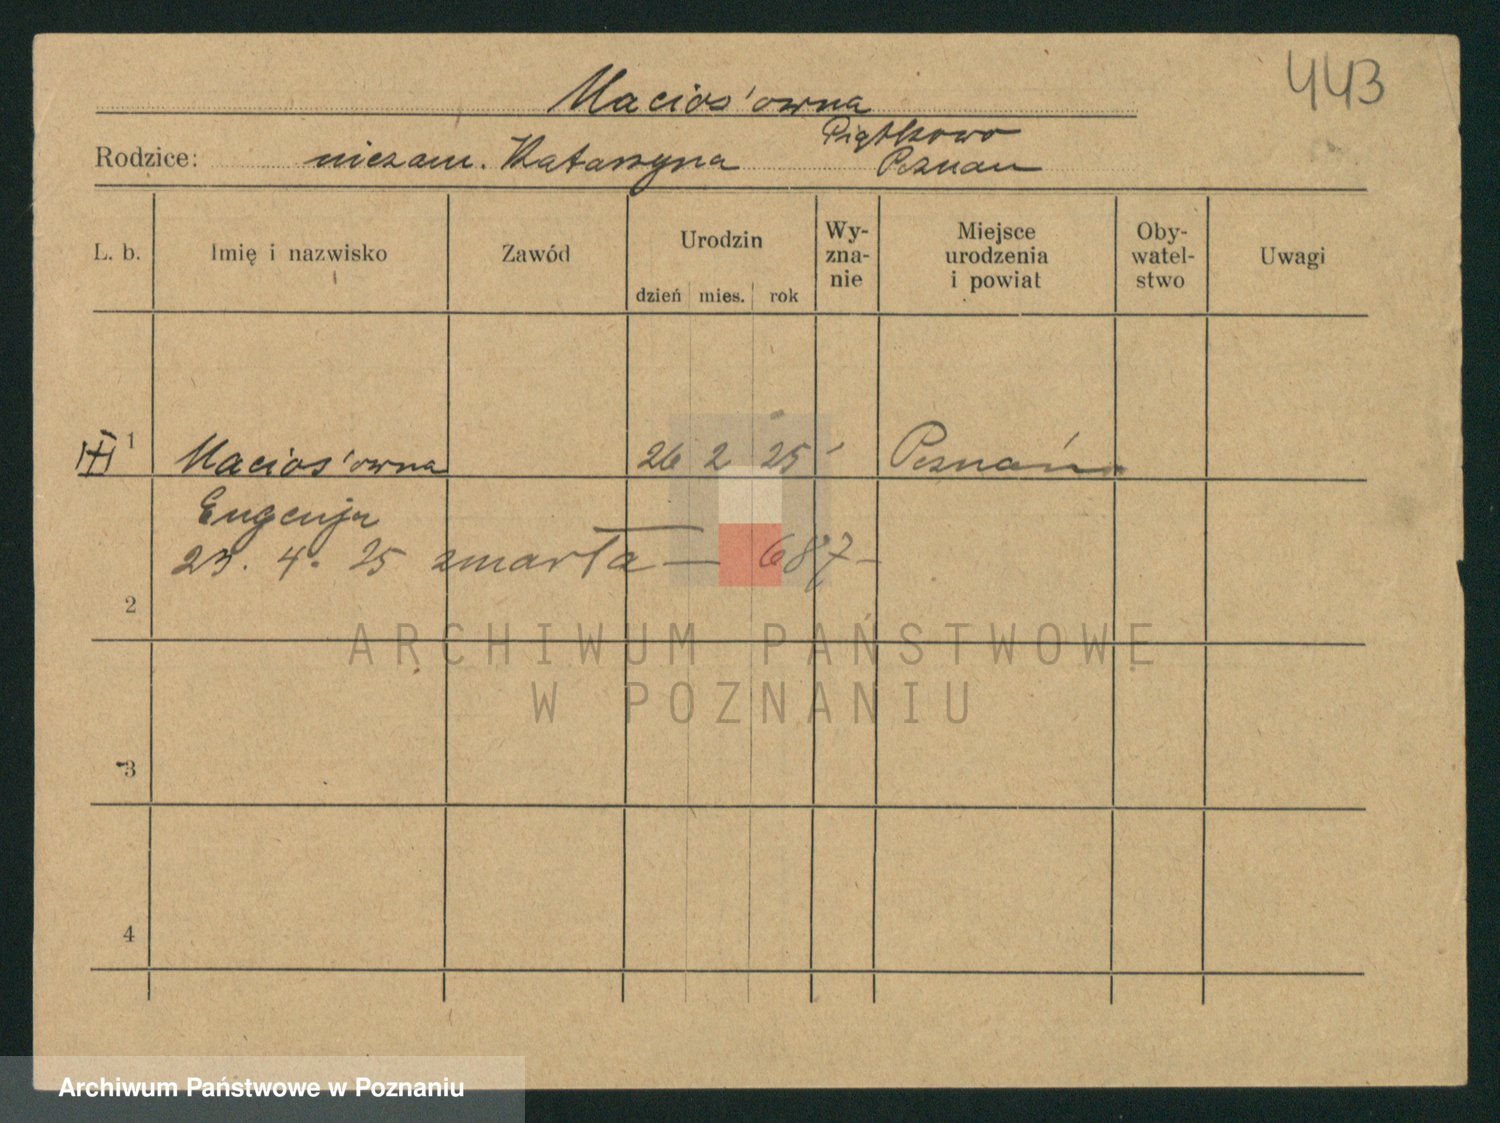 443
Maciosówna
Piątkowo
Rodzice: niezam. Katarzyna Poznań
L. b. Imię i nazwisko Zawód Urodzin dzień mies. rok Wy-zna-nie Miejsce urodzenia i powiat Oby-watel-stwo Uwagi
1 Maciosówna 26 2 25 Poznań
Eugenja
23. 4. 25 zmarła — 687 –
2
ARCHIWUM PAŃSTWOWE
W POZNANIU
3
4
Archiwum Państwowe w Poznaniu